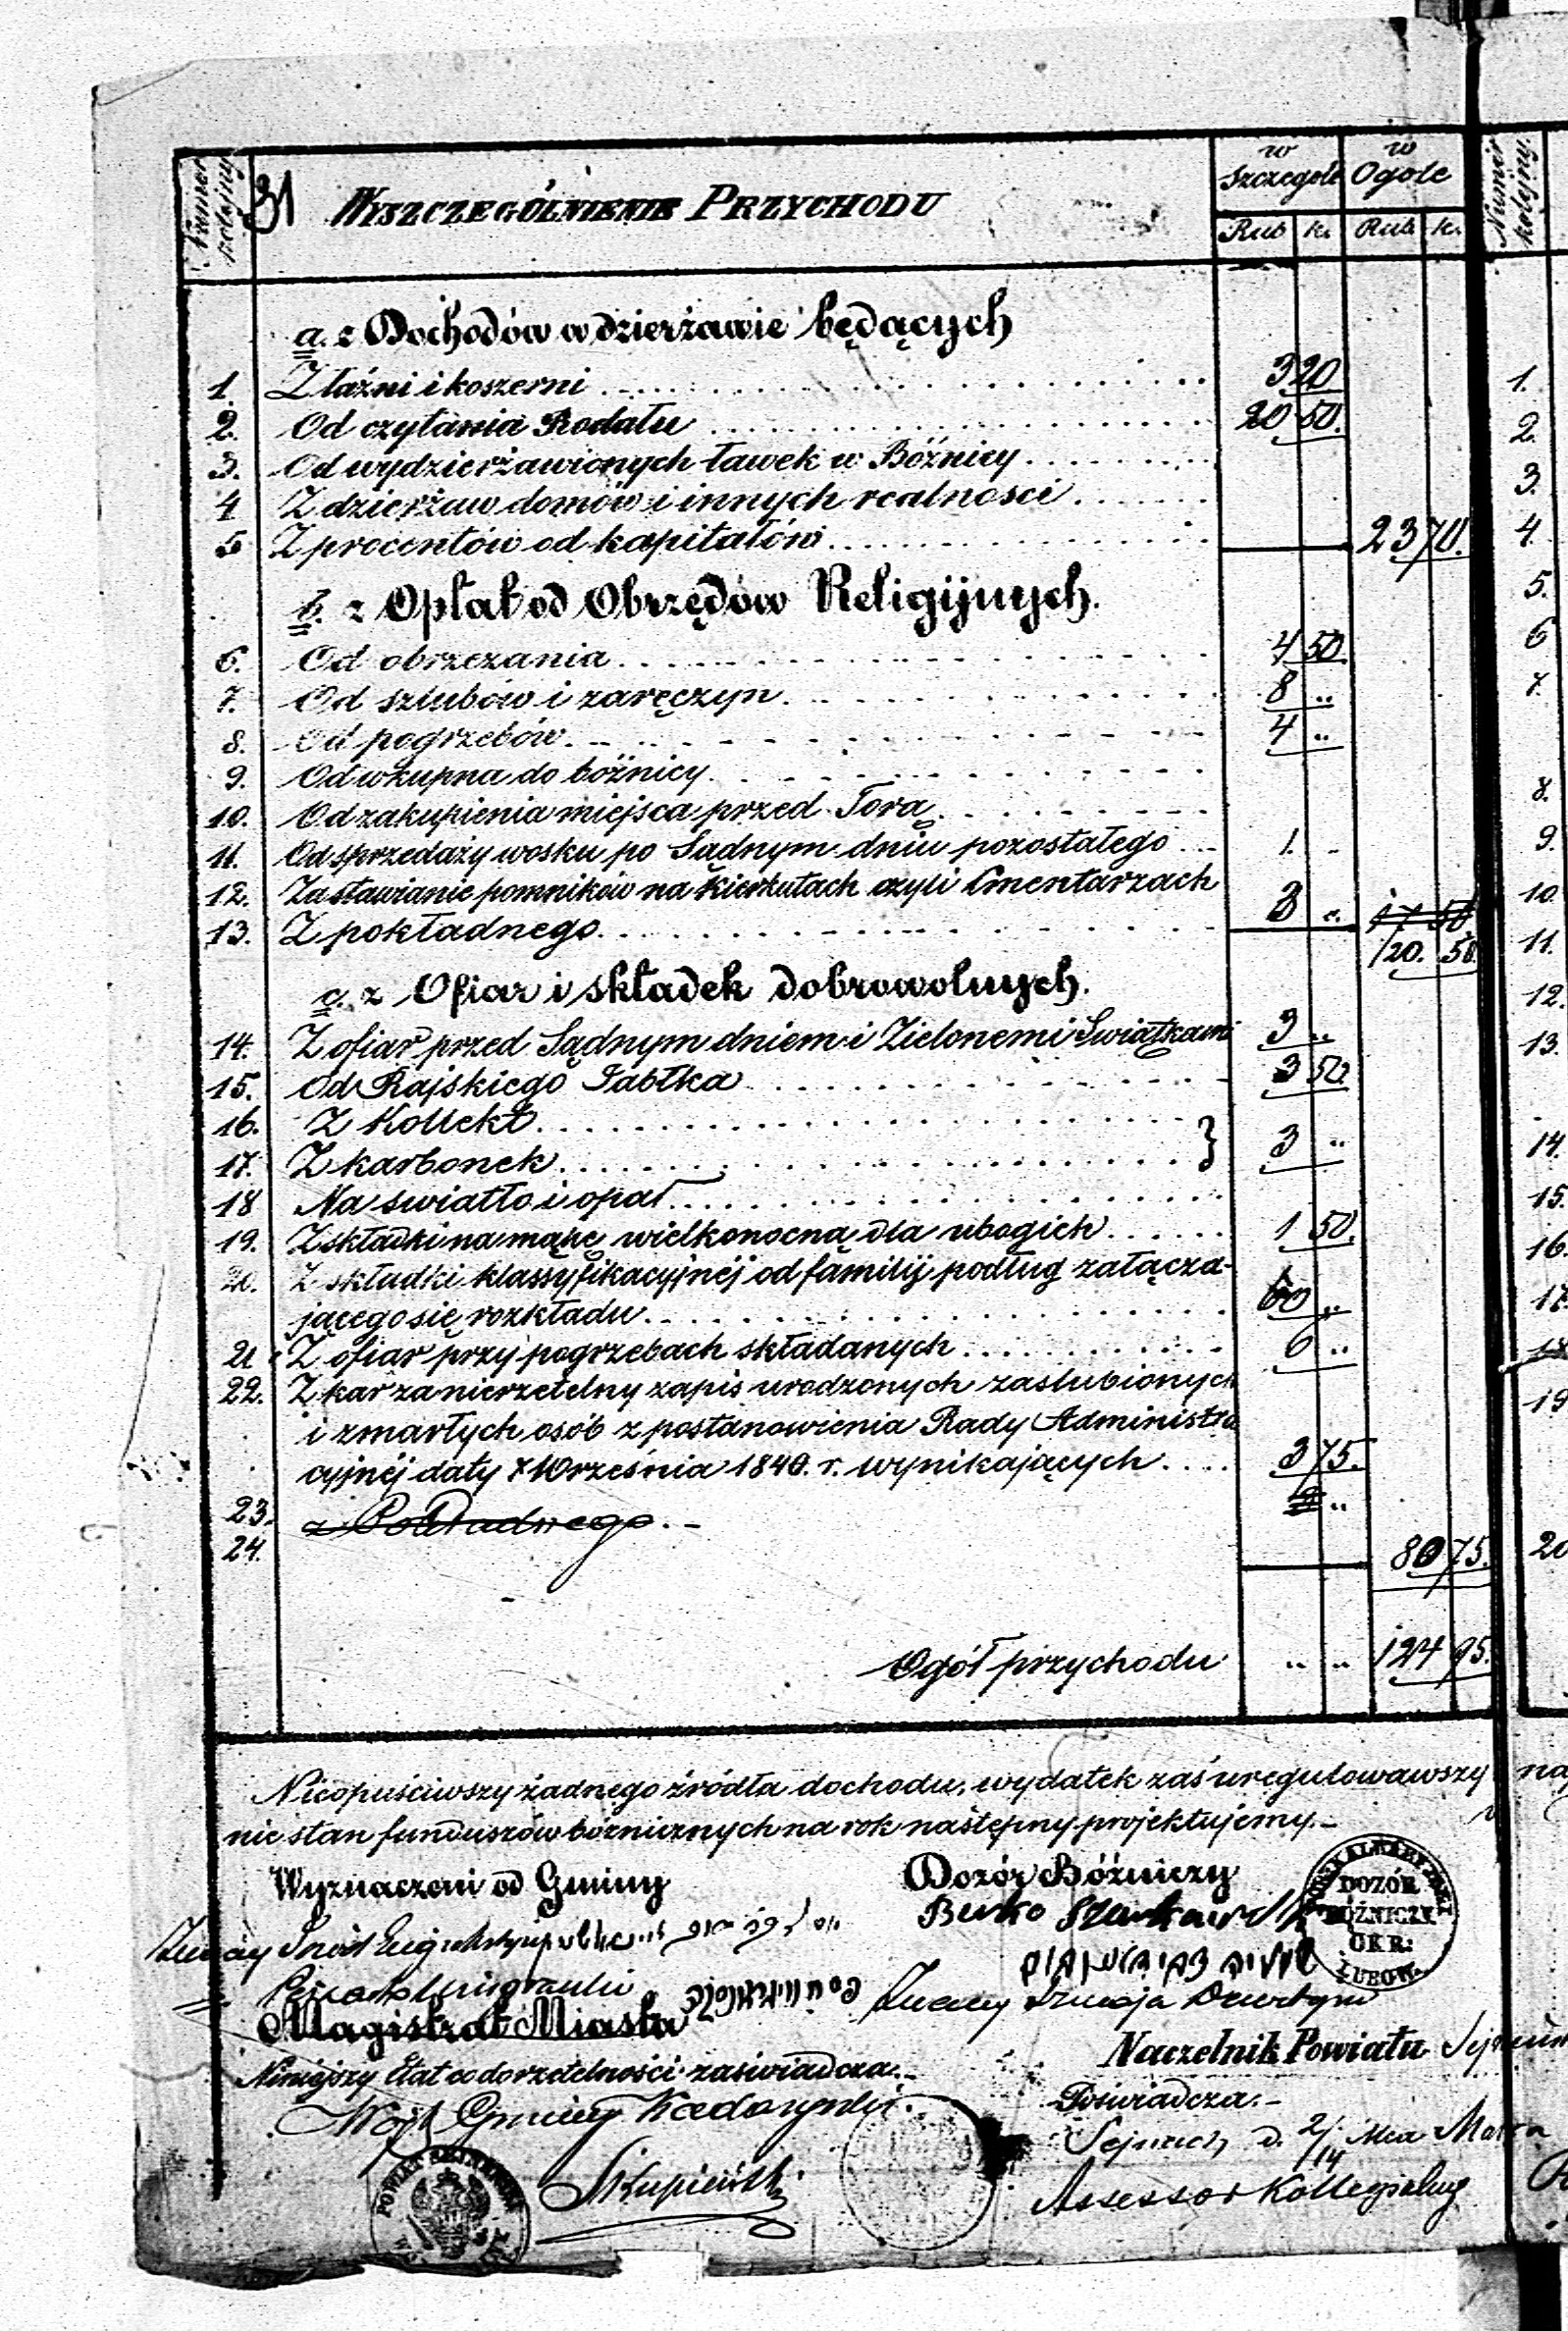 Numer kolejny
31
WYSZCZEGÓLNIENIE PRZYCHODU
w Szczegole
w Ogole
Rub k. Rub k.
a. z Dochodów w dzierżawie będących
1. Z łaźni i koszerni 3 20
2. Od czytania Rodału 20 50.
3. Od wydzierżawionych ławek w Bóźnicy
4 Z dzierżaw domów i innych realnosci
5 Z procentów od kapitałów 23 70.
b. z Opłat od Obrzędów Religijnych.
6. Od obrzezania 4 50.
7. Od szlubów i zaręczyn 8 "
8. Od pogrzebów 4 "
9. Od wkupna do bóźnicy
10. Od zakupienia miejsca przed Torą
11. Od sprzedaży wosku po Sądnym dniu pozostałego 1. -
12. Za stawianie pomników na kierkutach czyli Cmentarzach
13. Z pokładnego 3 " 17 50
20. 50.
c. z Ofiar i składek dobrowolnych.
14. Z ofiar przed Sądnym dniem i Zielonemi Swiątkami 3 "
15. Od Rajskiego Jabłka 3 50.
16. Z Kollekt
17. Z karbonek } 3 "
18 Na swiatło i opał
19. Z składki na mąkę wielkonocną dla ubogich 1 50.
20. Z składki klassyfikacyjnéj od familij podług załącza-
jącego się rozkładu 60 "
21. Z ofiar przy pogrzebach składanych 6 "
22. Z kar za nierzetelny zapis urodzonych zaslubionych
i zmarłych osób z postanowienia Rady Administra
cyjnéj daty 7 Września 1840. r. wynikających 3 75.
23. z Pokładnego.
24. 80 75.
Ogół przychodu " " 124 95.
Nieopuściwszy żadnego źródła dochodu, wydatek zaś uregulowawszy
nie stan funduszów bóźnicznych na rok następny projektujemy.
Wyznaczeni od Gminy
Dozór Bóźniczy
Berko
DOZÓR
BÓŹNICZY
OKR:
ŁUBOW.
Magistrat Miasta
Naczelnik Powiatu
Niniejszy Etat co do rzetelności zaświadcza.
Poświadcza.
Wójt Gminy
Sejnach d. 2/14 Mca Marca
Assessor Kollegialny